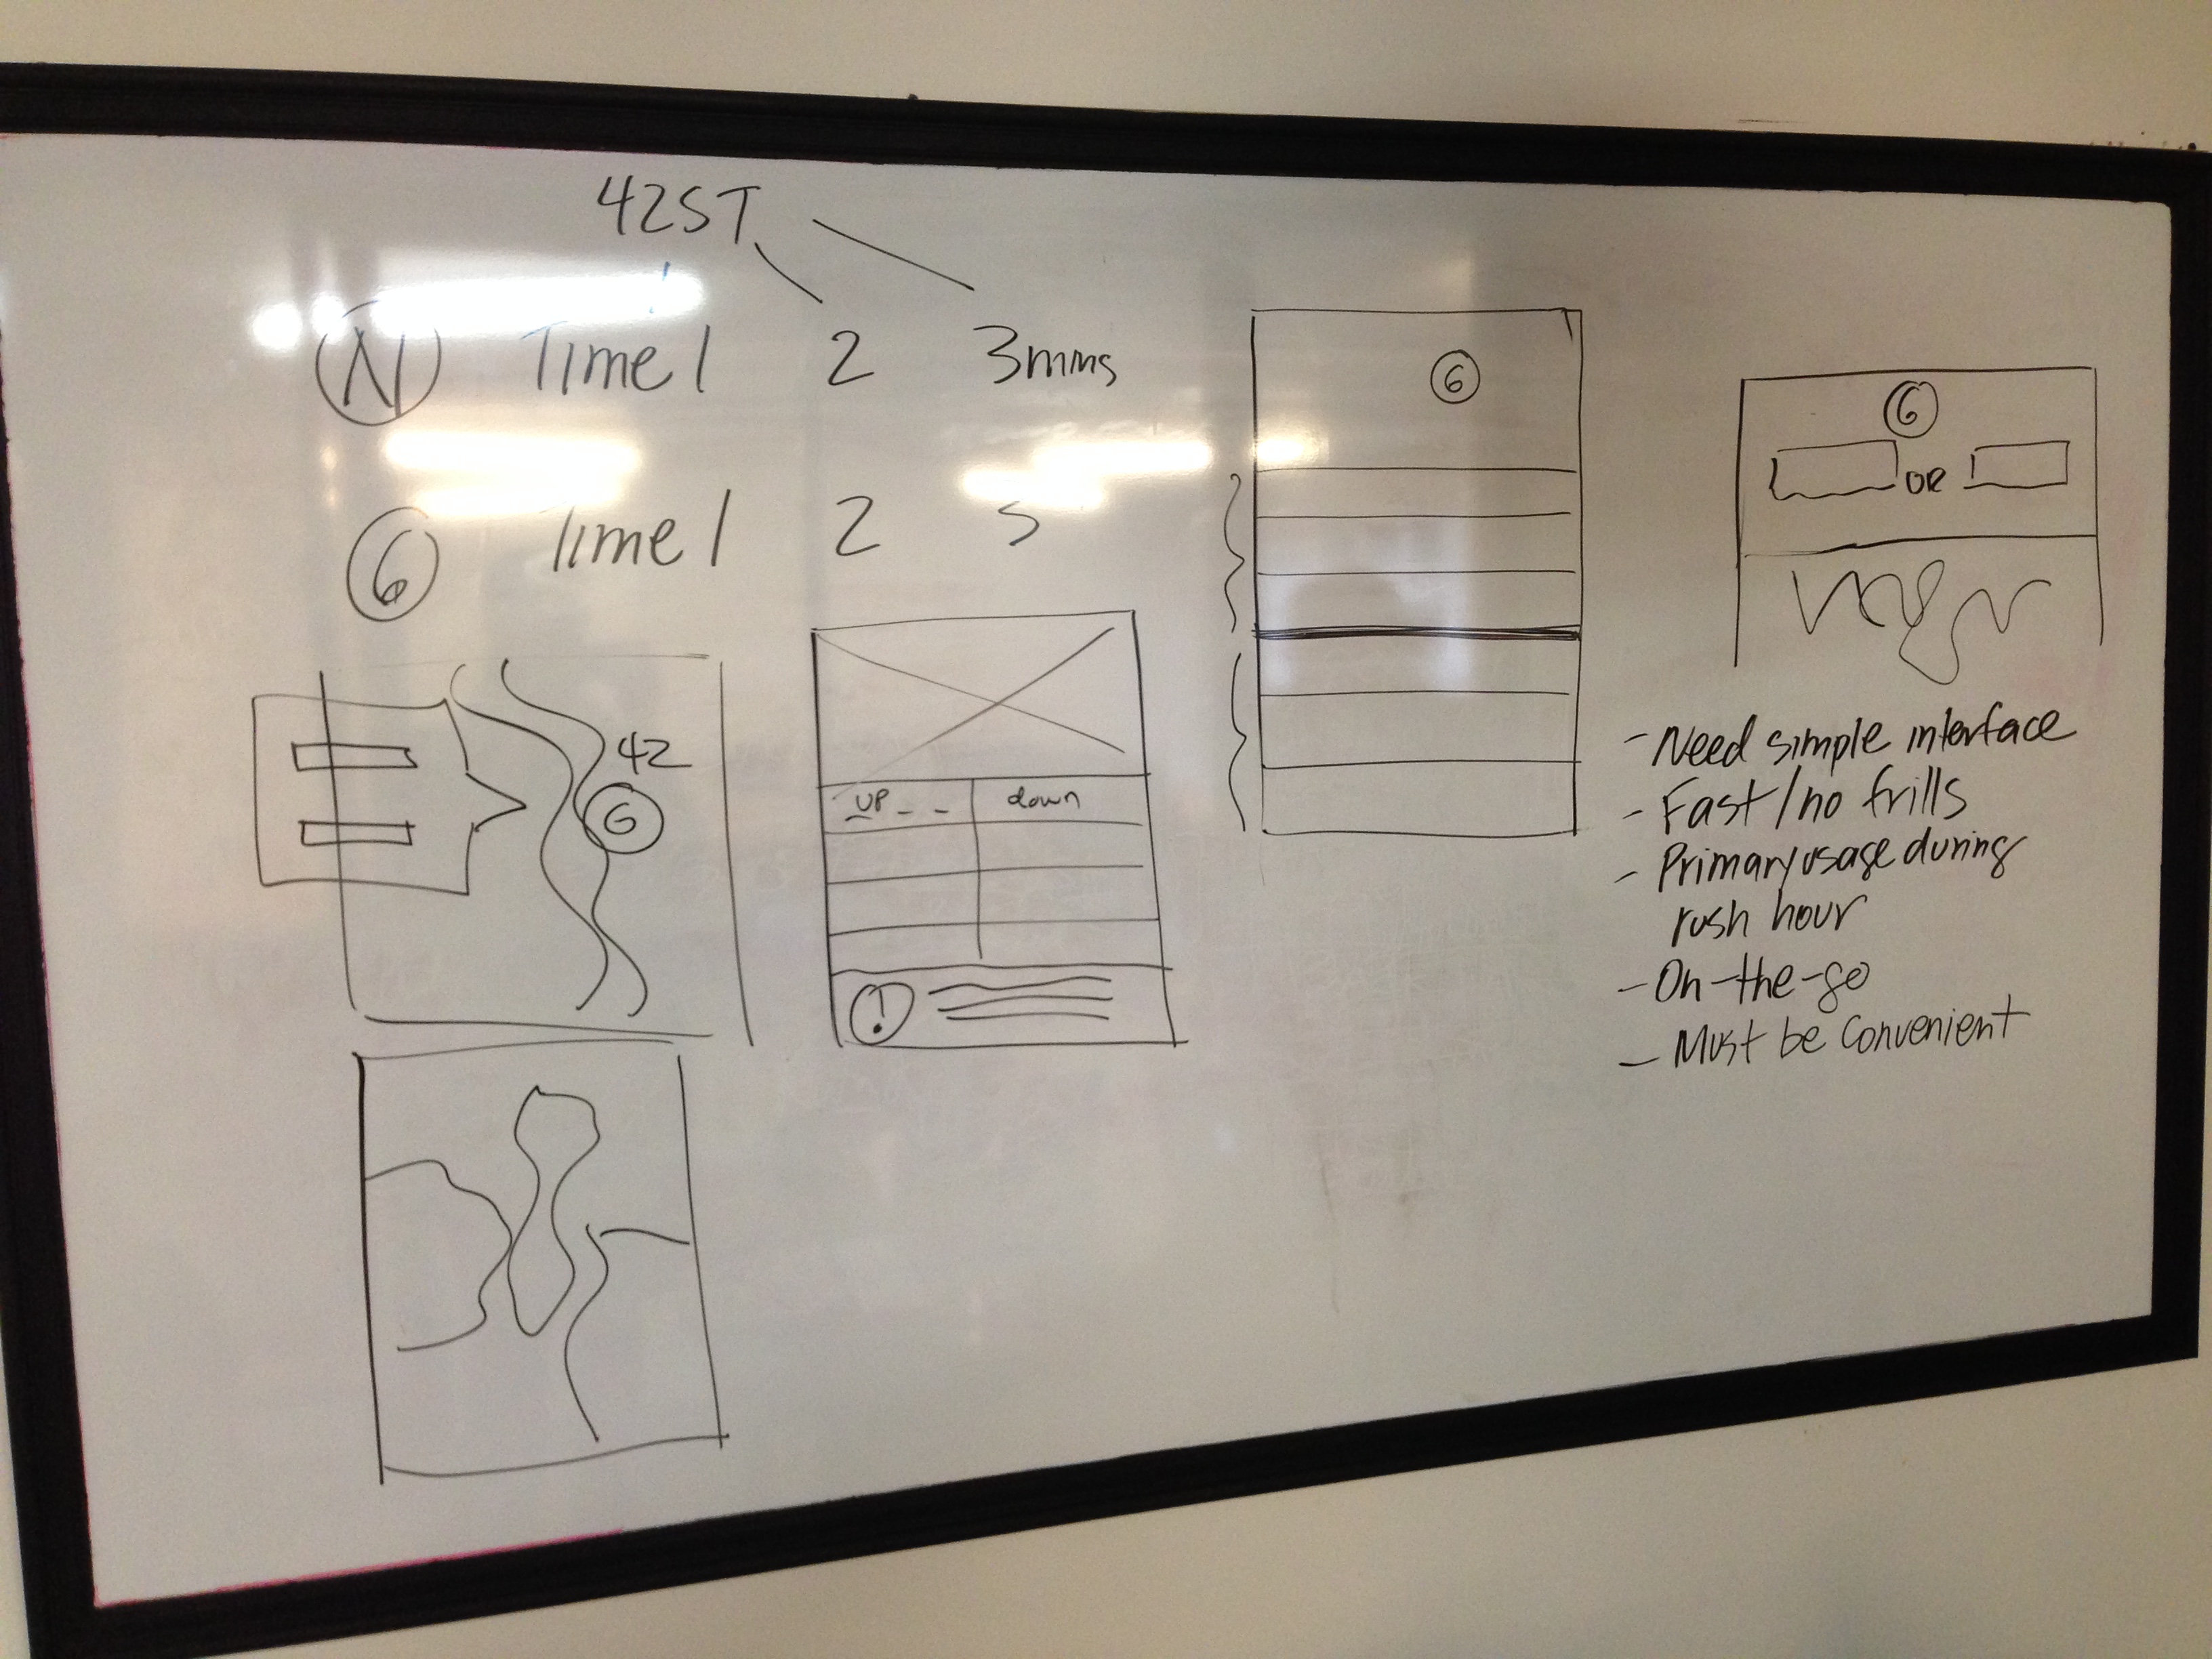 42ST
N Time 1 2 3mins
6 Time 1 2 5
6
6
OR
42
6
UP
down
!
- Need simple interface
- Fast/no frills
- Primary usage during
rush hour
- On-the-go
- Must be convenient